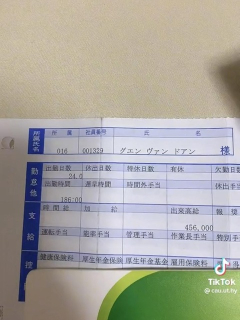 所属氏名
所 属 社員番号 氏 名
016 001329 グエン ヴァン ドアン 様
勤怠他
出勤日数 休出日数 特休日数 有休 欠勤日数
24.0
出勤時間 遅早時間 時間外手当 休出手当
186:00
支給
時間給 加給 出来高給
456,000
運転手当 能率手当 管理手当 作業長手当 特別手当
控
健康保険料 厚生年金保険 厚生年金基金 雇用保険料
TikTok
@cau.ut.hy